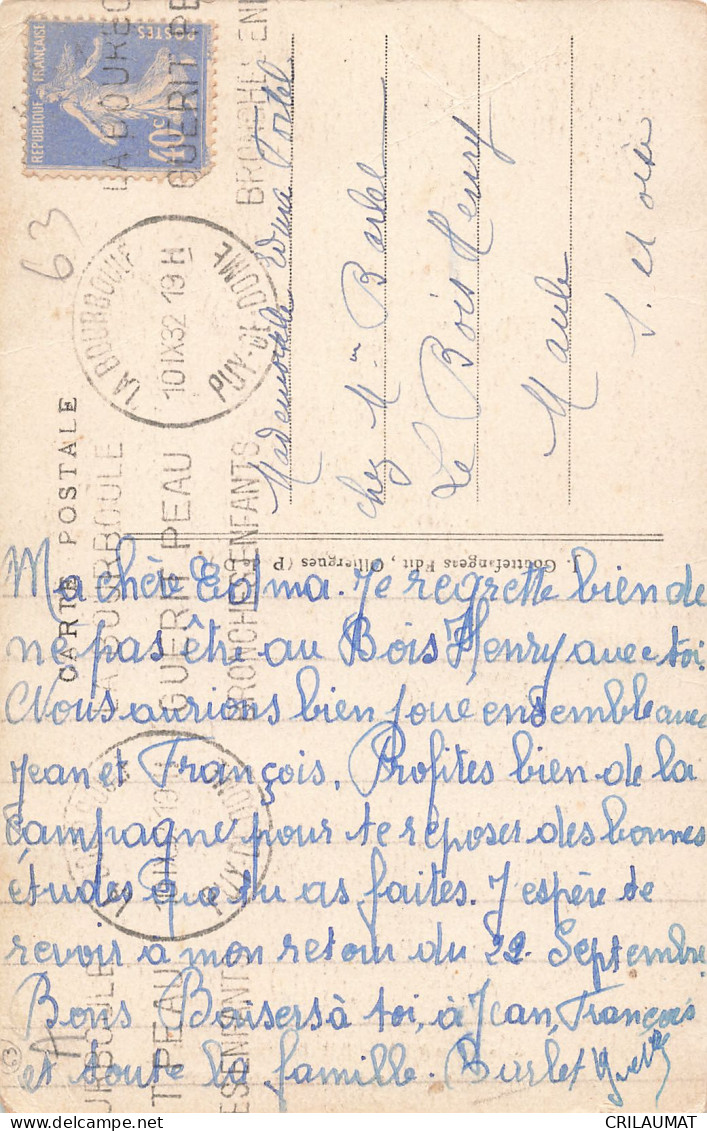 REPUBLIQUE FRANÇAISE
POSTES
40c
LA BOURBOULE
GUERIT PEAU
BRONCHES ENFANTS
63
LA BOURBOULE
10 IX 32 19 H
PUY-DE-DOME
CARTE POSTALE
Mademoiselle Edma
chez Mme Barlet
Le Bois Henry
Maule
S. et Oise
LA BOURBOULE
GUERIT PEAU
BRONCHES ENFANTS
J. Gouttefangeas Edit, Olliergues (P. d
Ma chère Edma. Je regrette bien de
ne pas être au Bois Henry avec toi
Nous aurions bien joué ensemble avec
Jean et François. Profites bien de la
campagne pour te reposer des bonnes
études que tu as faites. J'espère te
revoir à mon retour du 22 Septembre
Bons Baisers à toi, à Jean, François
et toute la famille. Burlet Yvette
BOURBOULE
T PEAU
ES ENFANTS
63
CRILAUMAT